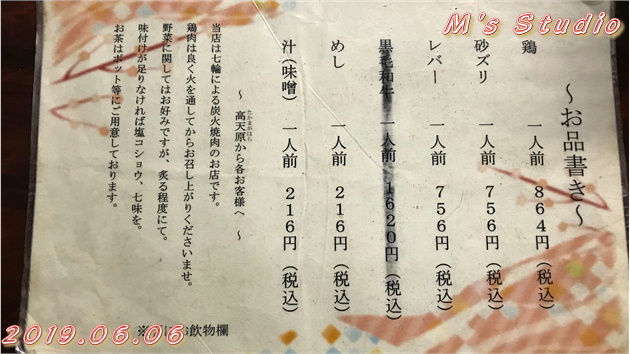 M's Studio
～お品書き～
鶏 一人前 864円（税込）
砂ズリ 一人前 756円（税込）
レバー 一人前 756円（税込）
黒毛和牛 一人前 1620円（税込）
めし 一人前 216円（税込）
汁（味噌） 一人前 216円（税込）
～高天原から各お客様へ～
たかまがはら
当店は七輪による炭火焼肉のお店です。
鶏肉は良く火を通してからお召し上がりくださいませ。
野菜に関してはお好みですが、炙る程度にて。
味付けが足りなければ塩コショウ、七味を。
お茶はポット等にご用意しております。
※ お飲物欄
2019.06.06